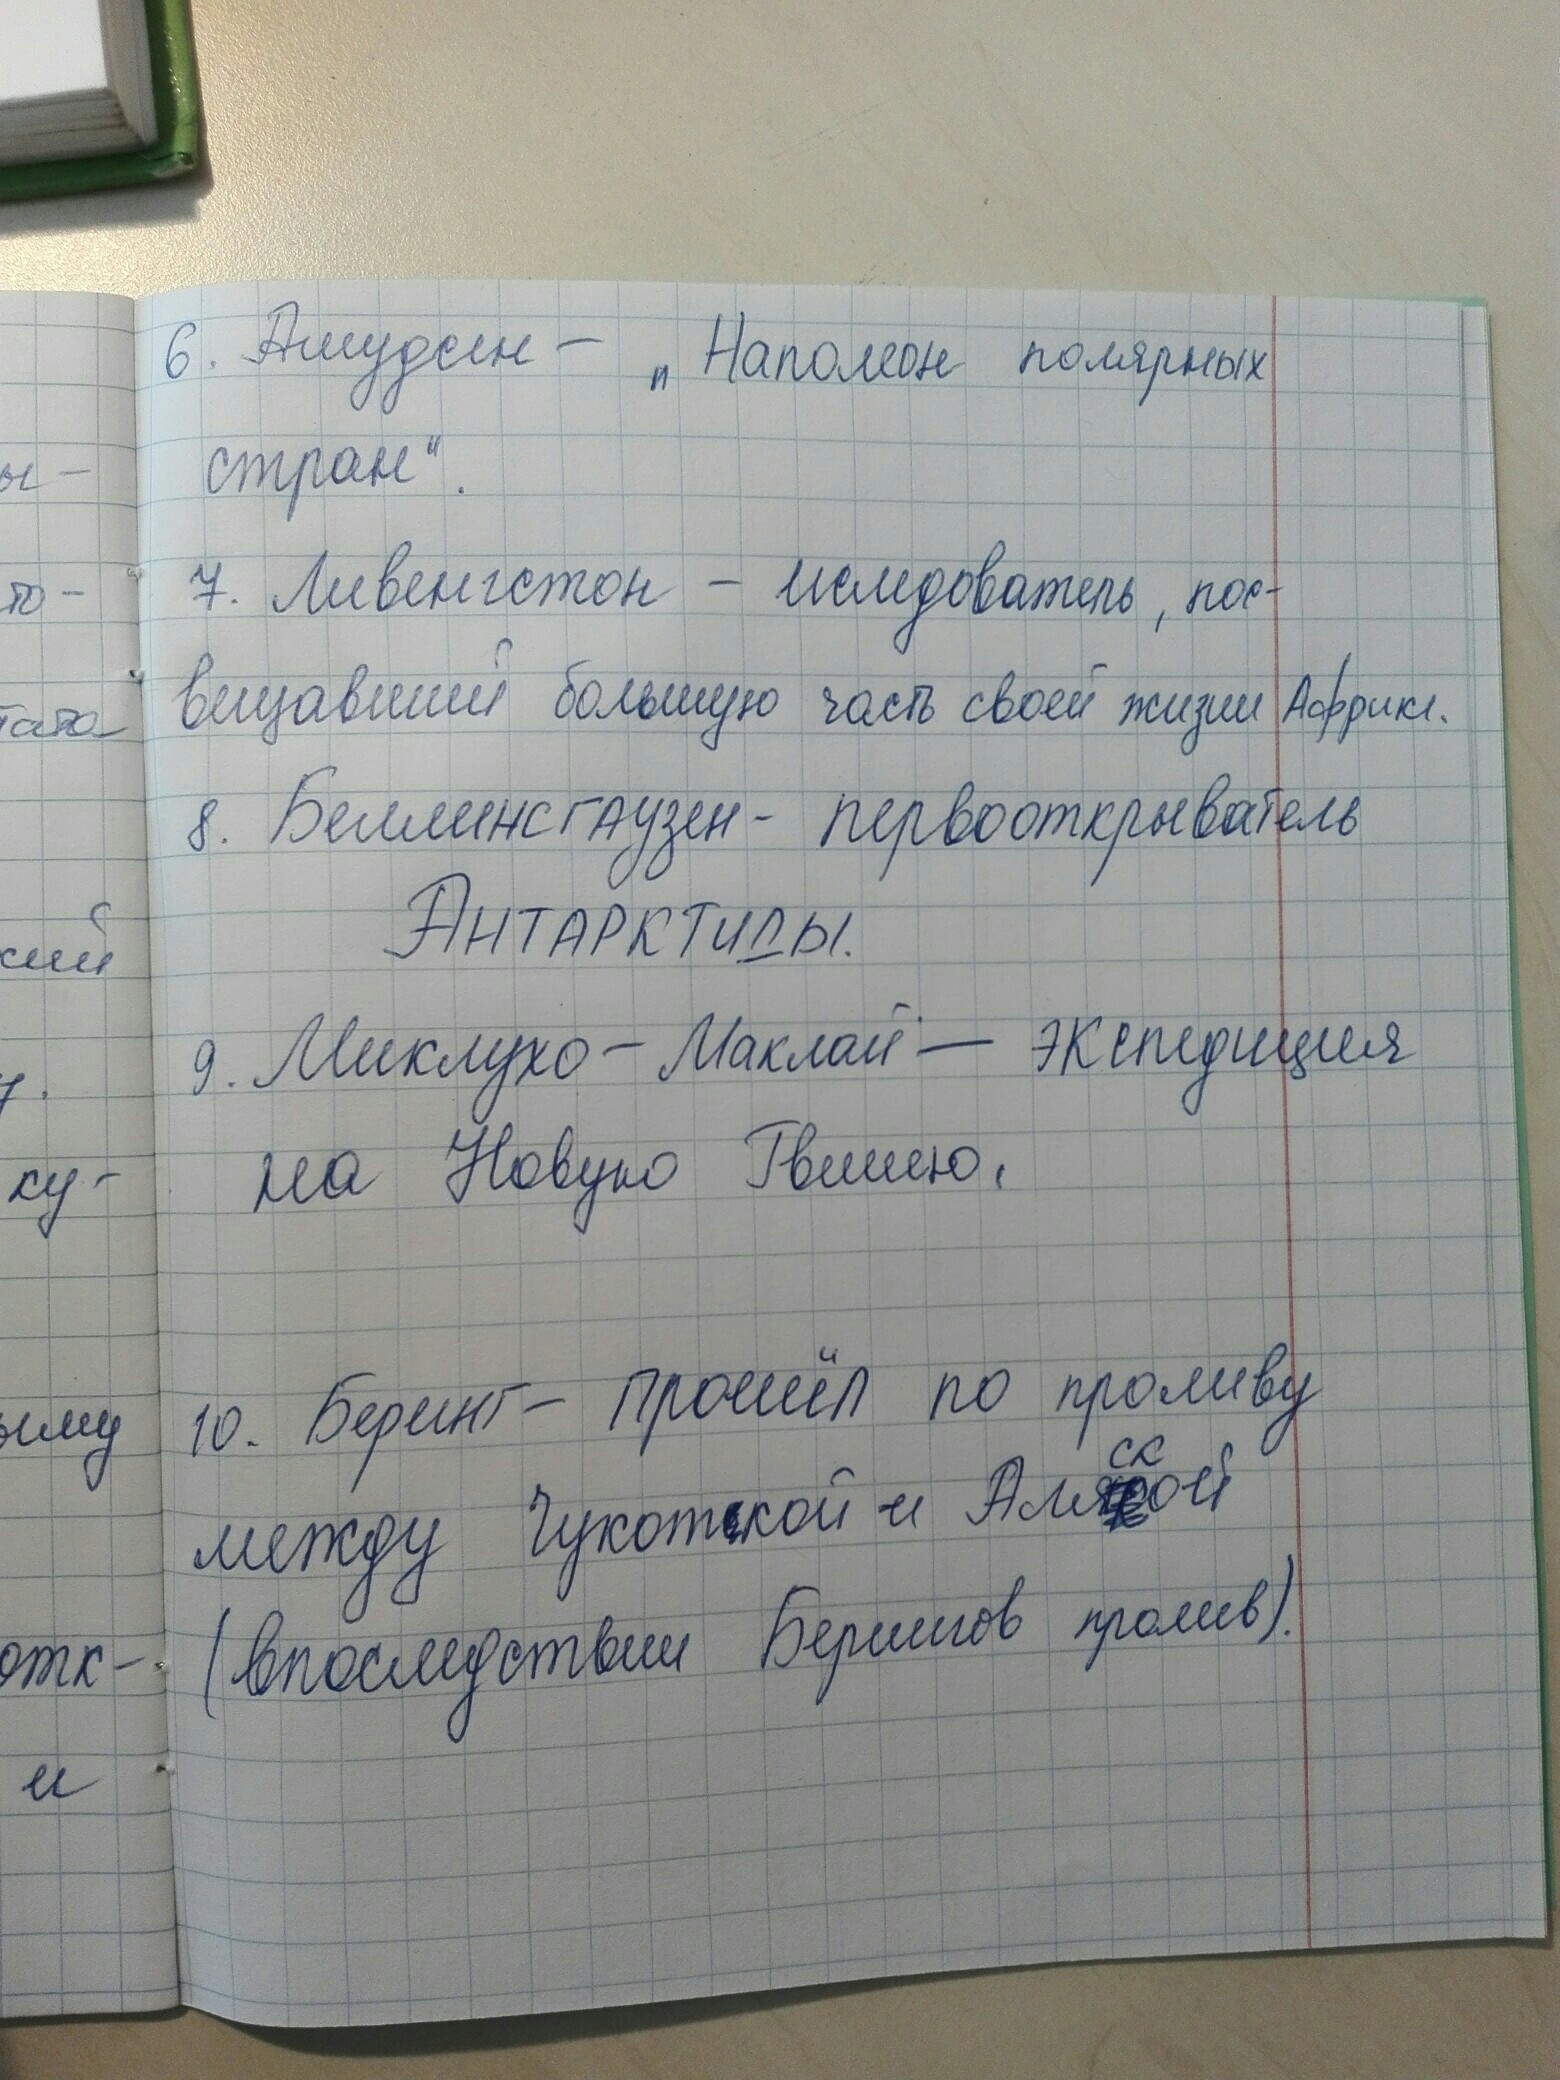 6. Амудсен – „Наполеон полярных
стран“.
7. Ливенгстон – иследователь, пос-
вещавший большую часть своей жизни Африке.
8. Беллинсгаузен - первооткрыватель
Антарктиды.
9. Миклухо – Маклай — экспедиция
на Новую Гвинею.
10. Беринг – прошёл по проливу
между Чукоткой и Аляской
(впоследствии Берингов пролив).
ы –
то -
кий
ку -
ыму
отк -
и